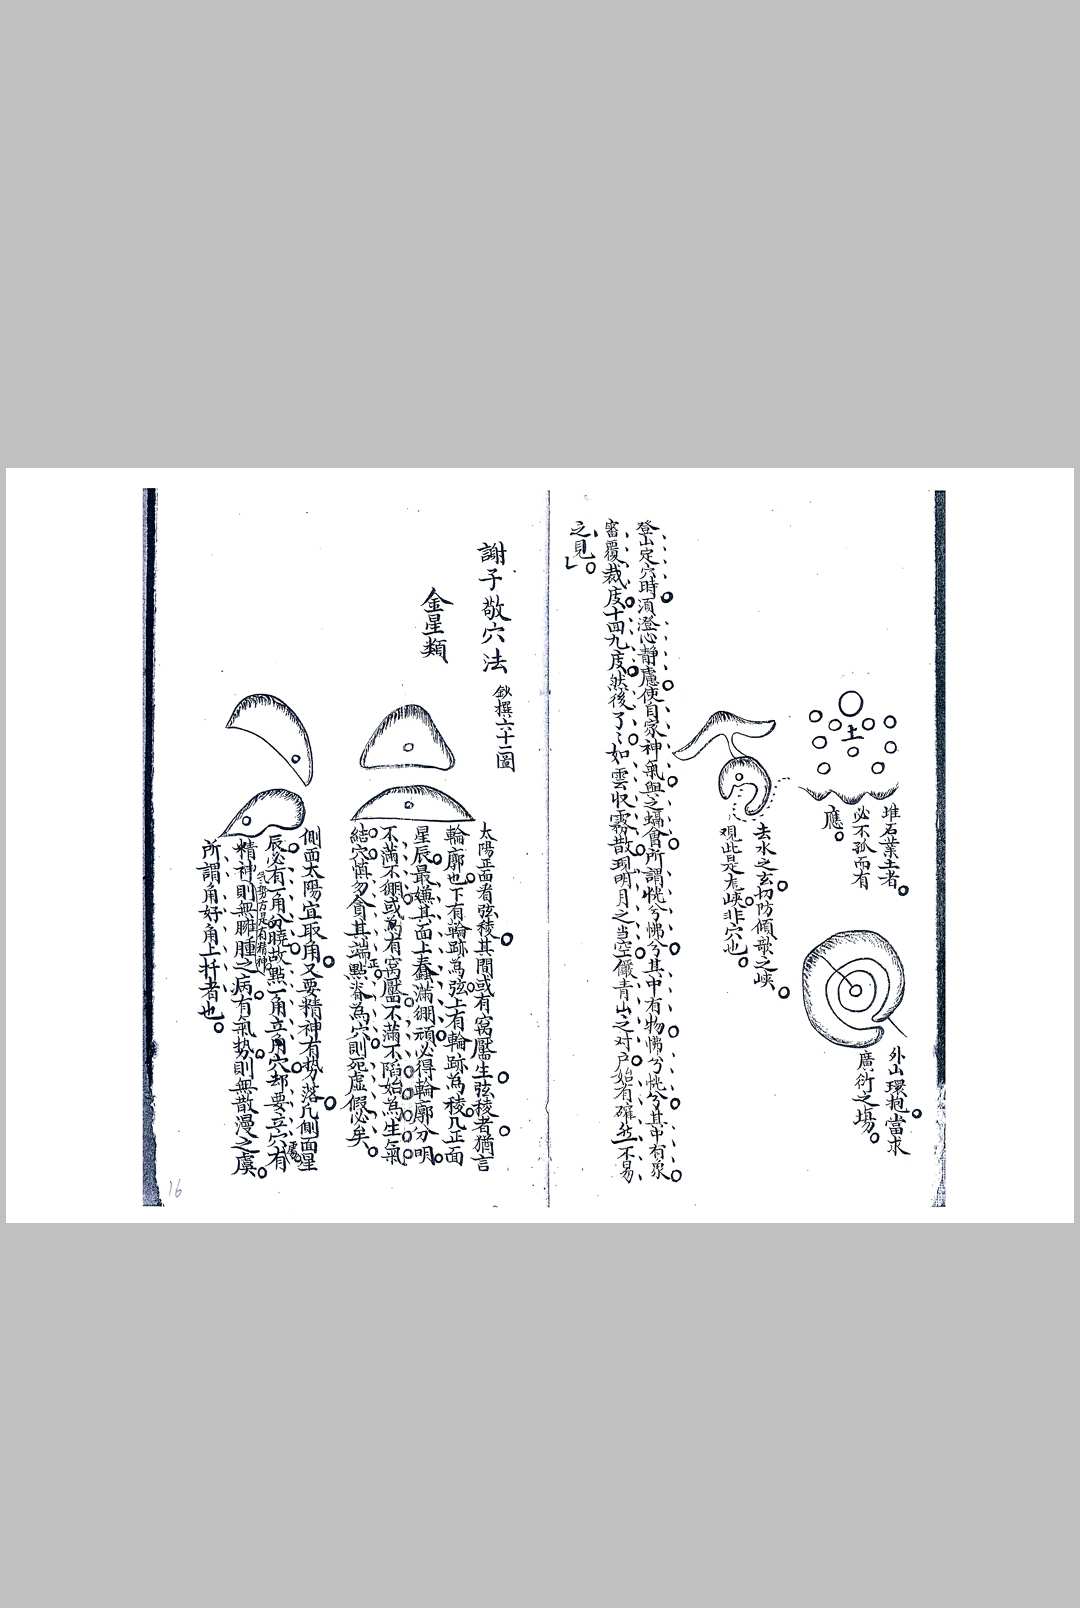 土
堆石業土者
必不孤而有
應
外山環抱當求
廣衍之場
去水之玄切防傾欹之峡
觀此是尨峡非穴也
登山定穴時須澄心靜慮使自家神氣與之媾會所謂恍兮惚兮其中有物惚兮恍兮其中有象
審覆裁度十四九度然後了々如雲收霧散現明月之当空儼青山之对戸始有確然不易
之見
謝子敬穴法 鈔撰六十二圖
金星類
太陽正面者弦稜其間或有窩靨生弦稜者猶言
輪廓也下有輪跡為弦上有輪跡為稜凡正面
星辰最嫌其面上蠢滿綳頑必得輪廓分明
不滿不綳或為有窩靨不滿不陷始為生氣
結穴慎勿貪其端正點脊為穴則死虛假必矣
側面太陽宜取角又要精神有势落凡側面星
辰必有一角分曉故點一角立角穴却要立穴有
精神則無臃腫之病有氣势則無散漫之虞
所謂角好角上扦者也
16